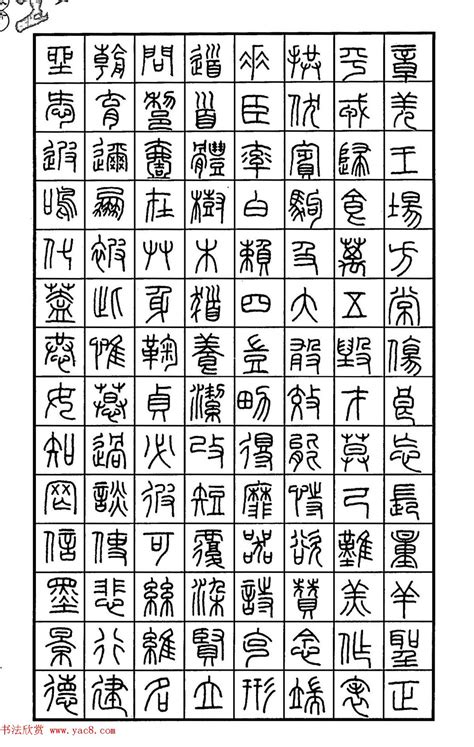 坐朝問道垂拱平章
愛育黎首臣伏戎羌
遐邇壹體率賓歸王
鳴鳳在樹白駒食場
化被草木賴及萬方
蓋此身髮四大五常
恭惟鞠養豈敢毀傷
女慕貞潔男效才良
知過必改得能莫忘
罔談彼短靡恃己長
信使可覆器欲難量
墨悲絲染詩贊羔羊
景行維賢克念作聖
德建名立形端表正
书法欣赏 www.yac8.com